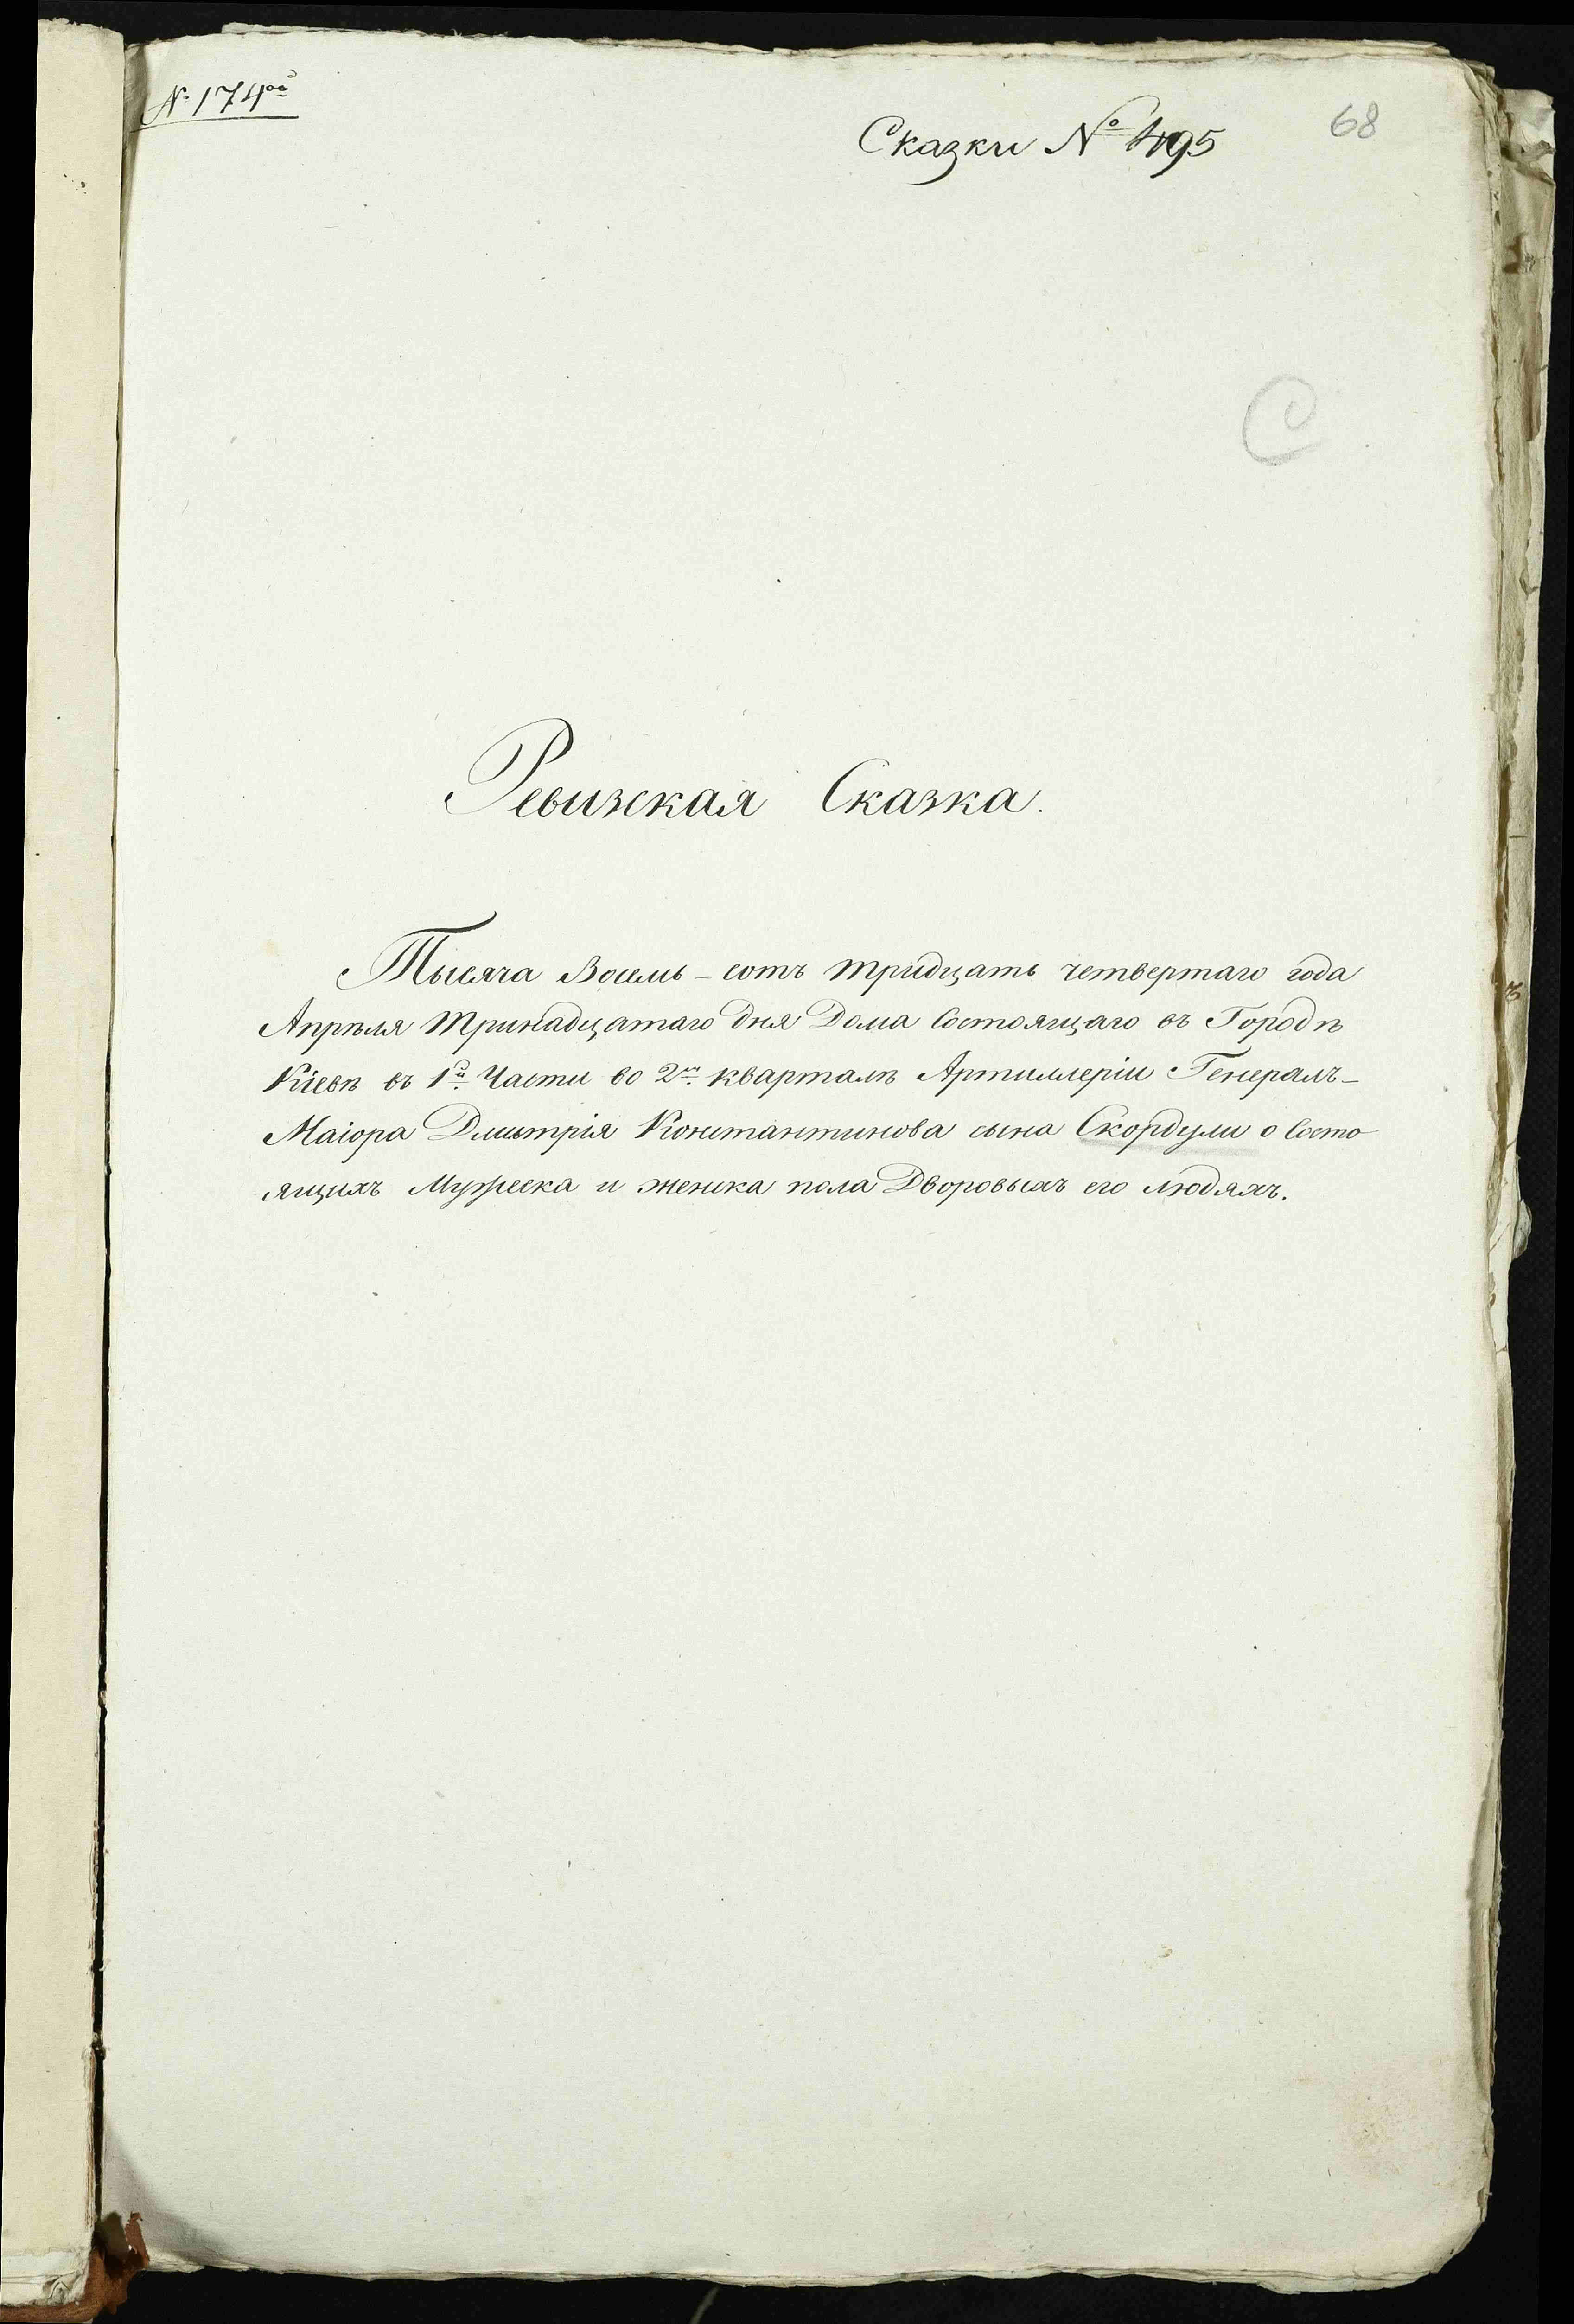 № 174ой
Сказки № 495
68
С
Ревизская Сказка.
Тысяча Восемь-сотъ тридцать четвертаго года
Апрѣля тринадцатаго дня Дома Состоящаго въ Городѣ
Кіевѣ въ 1й Части во 2м кварталѣ Артиллеріи Генералъ-
Маіора Дмитрія Константинова сына Скордули о Состо
ящихъ Мужеска и женска пола Дворовыхъ его людяхъ.